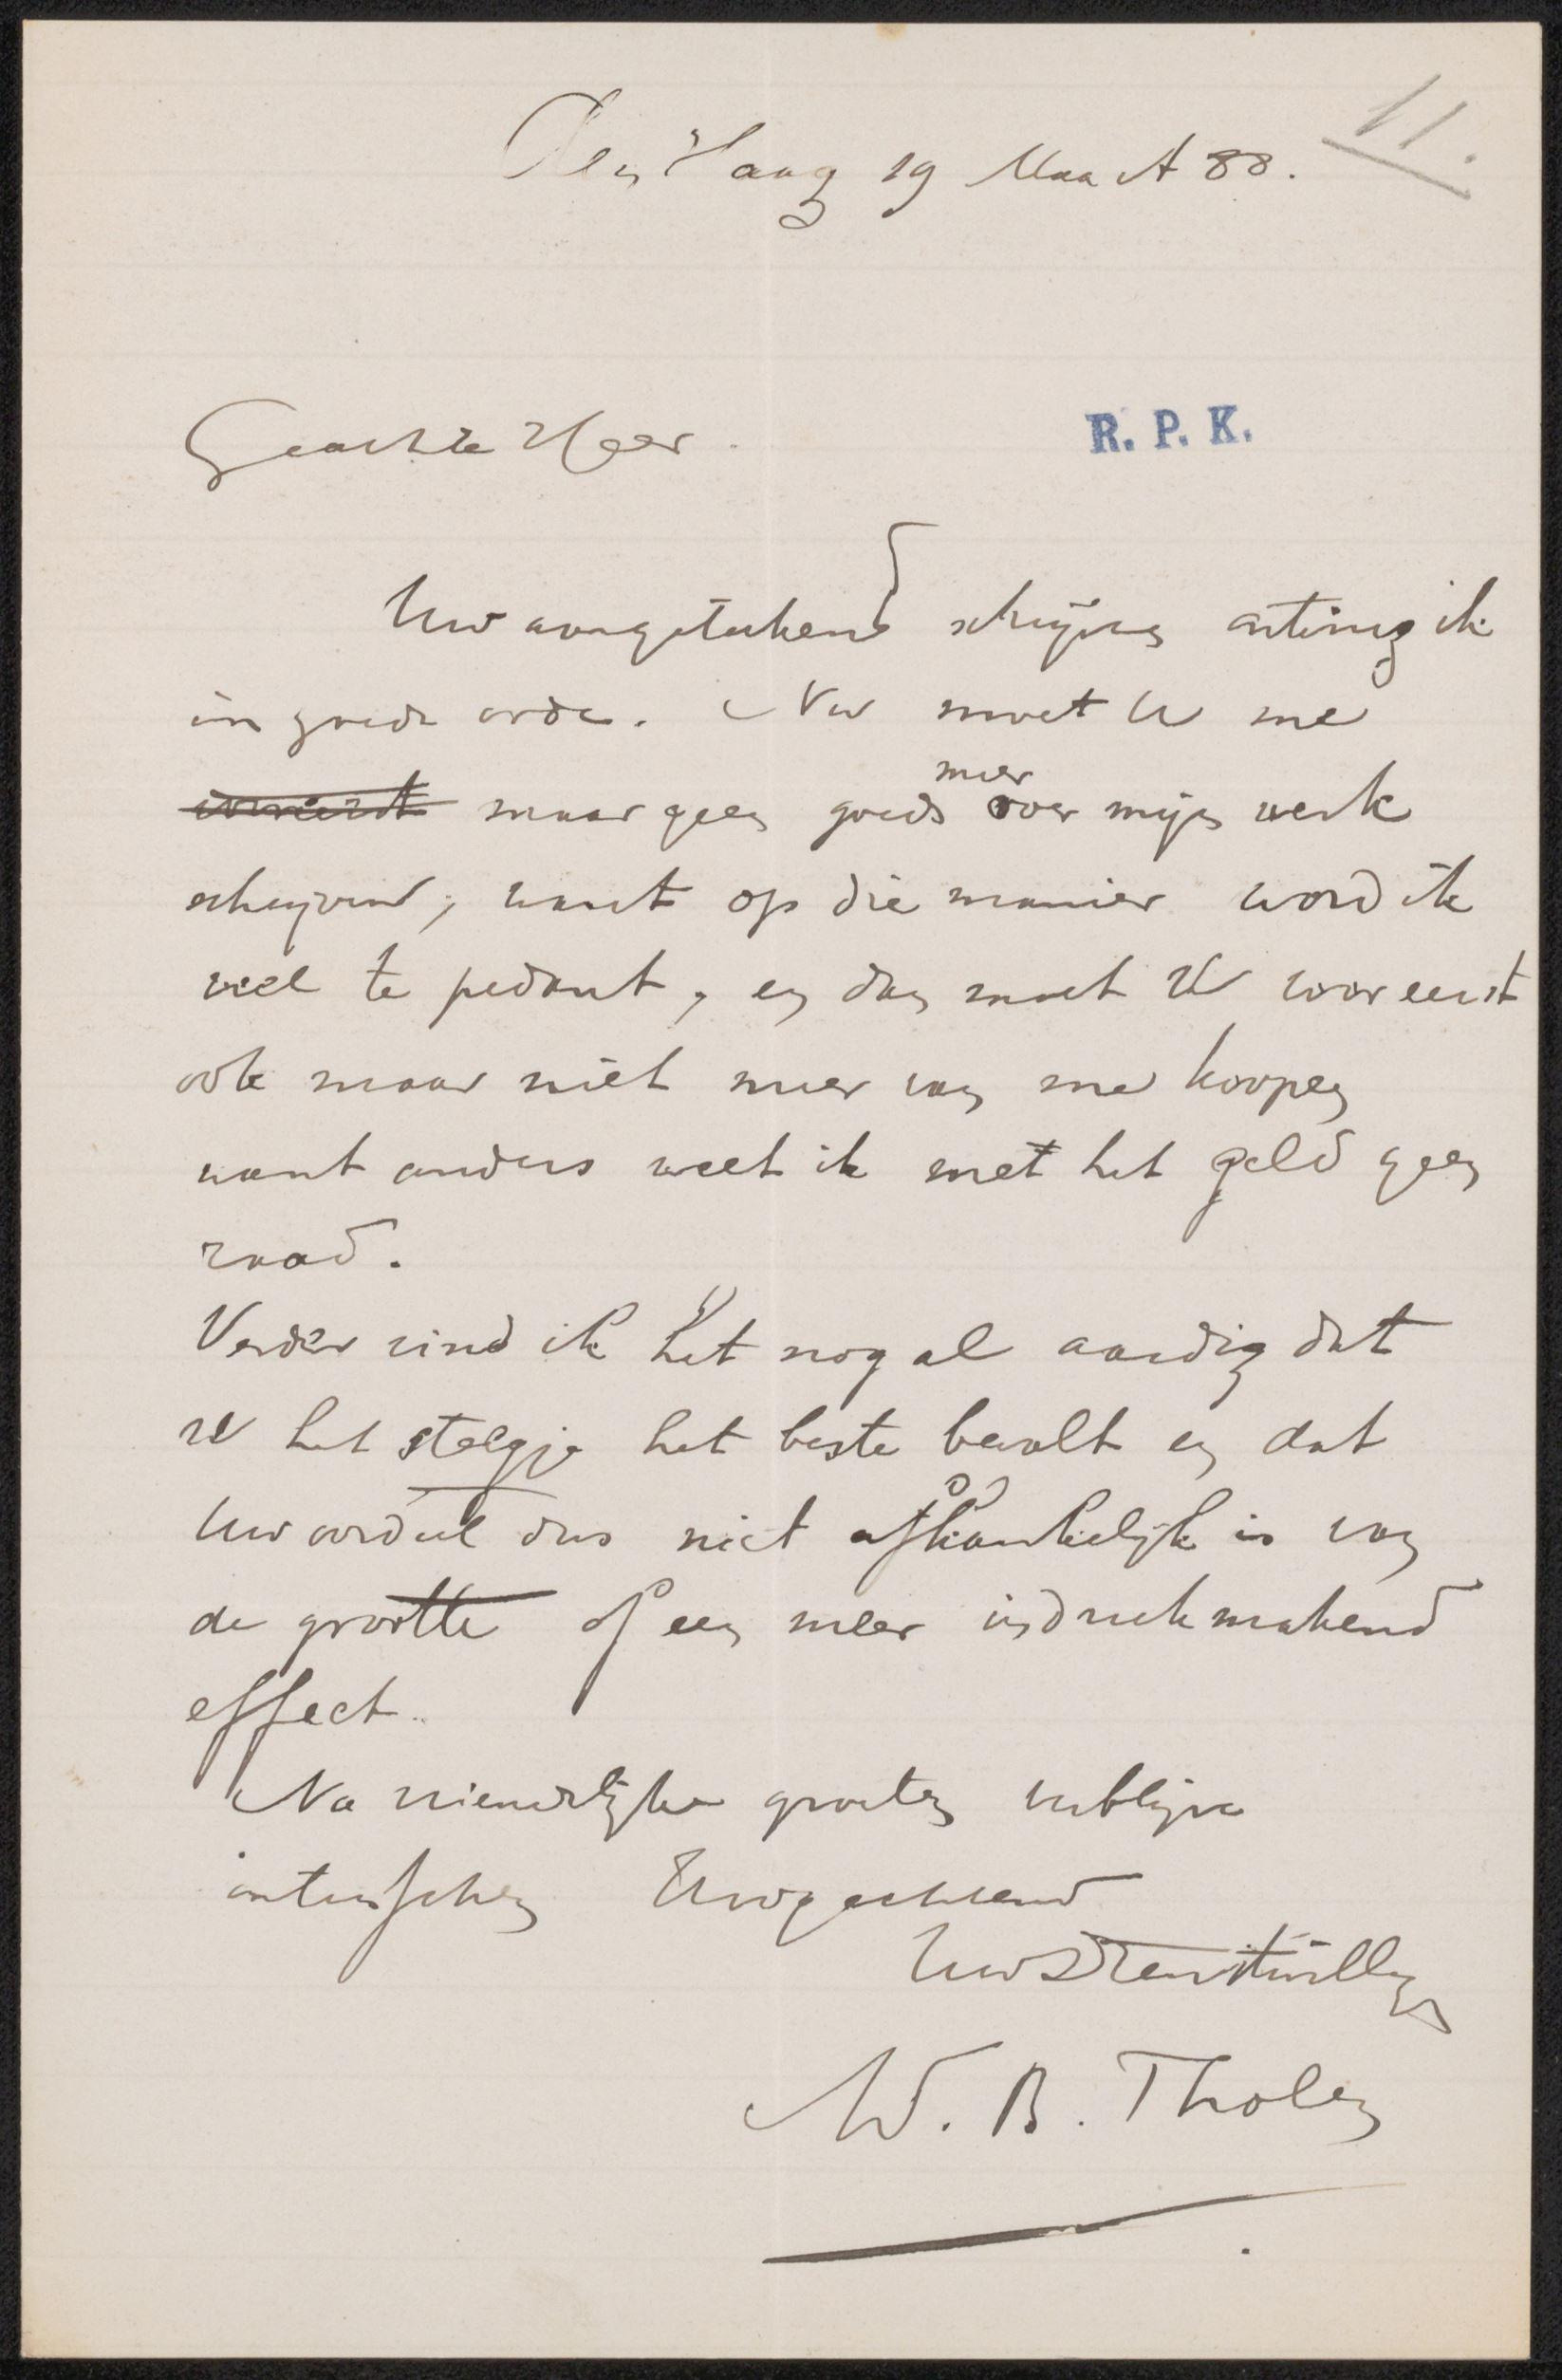 11.
Den Haag 19 Maart 88.
Geachte Heer.
R. P. K.
Uw aangetekend schrijven ontving ik
in goede orde. Nu moet U me
maar geen goeds meer over mijn werk
schrijven, want op die manier word ik
veel te pedant, en dan moet U vooreerst
ook maar niet meer van me koopen
want anders weet ik met het geld geen
raad.
Verder vind ik het nog al aardig dat
U het steegje het beste bevalt en dat
Uw oordeel dus niet afhankelijk is van
de grootte of een meer indrukmakend
effect.
Na vriendelijke groeten verblijve
intusschen Uw geachtend
Uw Dienstwillige
W. B. Tholen